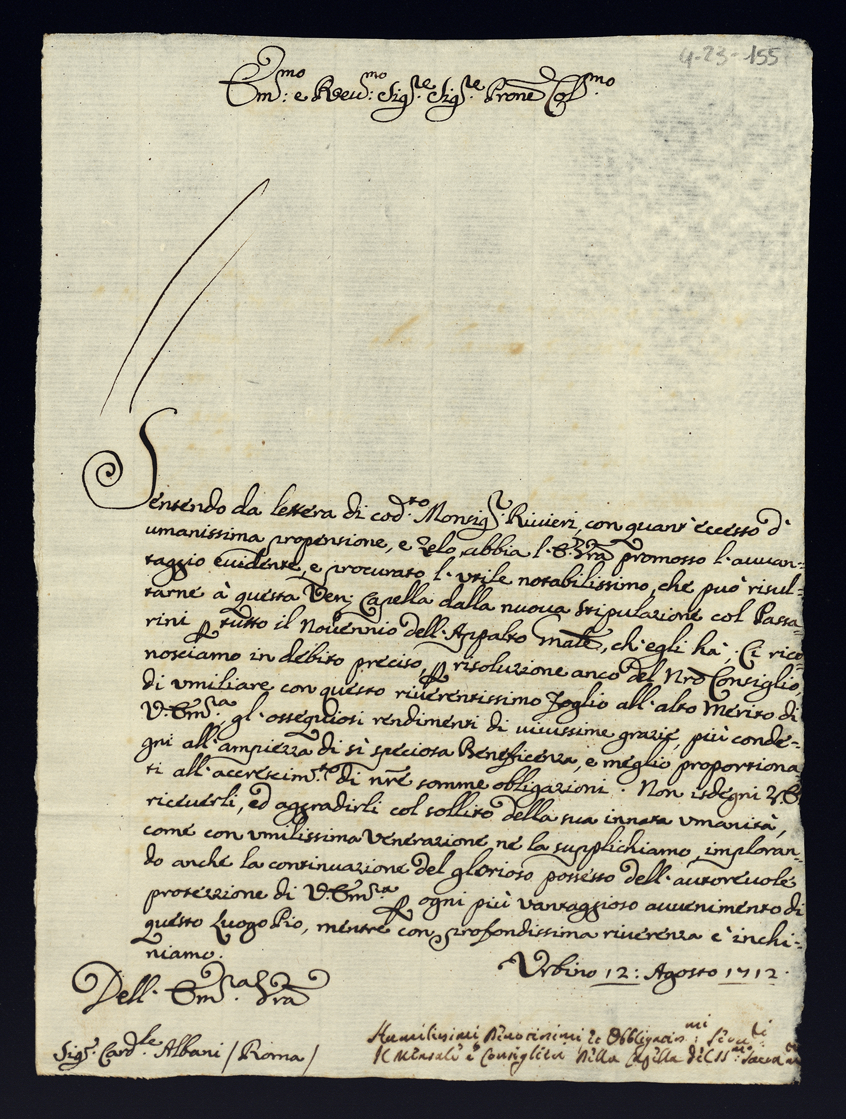 4-23-155
Em:mo e Reu:mo Sig:re Sig:re Prone Col:mo
Sentendo da lettera di cod:to Monsig:r Rivieri, con quant'eccesso d'
umanissima propensione, e zelo abbia l'E. Vra promosso l'auuan-
taggio euidente, e procurato l'vtile notabilissimo, che può risul-
tarne à questa Ven: Capella dalla nuoua stipulazione col Passa-
rini p tutto il Nouennio dell'Appalto, ch'egli hà; Ci rico-
nosciamo in debito preciso, p risoluzione anco del Nrō Consiglio,
di vmiliare con questo riuerentissimo foglio all'alto Merito di
V. Em:za gl'ossequiosi rendimenti di viuissime grazie, più conde-
gni all'ampiezza di sì speciosa Beneficenza, e meglio proporziona-
ti all'accrescim:to di nrē somme obligazioni. Non isdegni V. E.
riceuerli, ed aggradirli col sollito della sua innata vmanità,
come con vmilissima Venerazione, ne la supplichiamo, imploran-
do anche la continuazione del glorioso possesso dell'autoreuole
protezzione di V. Em:za p ogni più vantaggioso auuenimento di
questo Luogo Pio, mentre con profondissima riuerenza c'inchi-
niamo.
Vrbino 12: Agosto 1712.
Dell'Em:za Vra
Humilissimi Deuotissimi et Obbligatis:mi Seru:ti
Il Mensali e Consiglieri della Capella del SS:mo
Sig:r Card:le Albani / Roma /